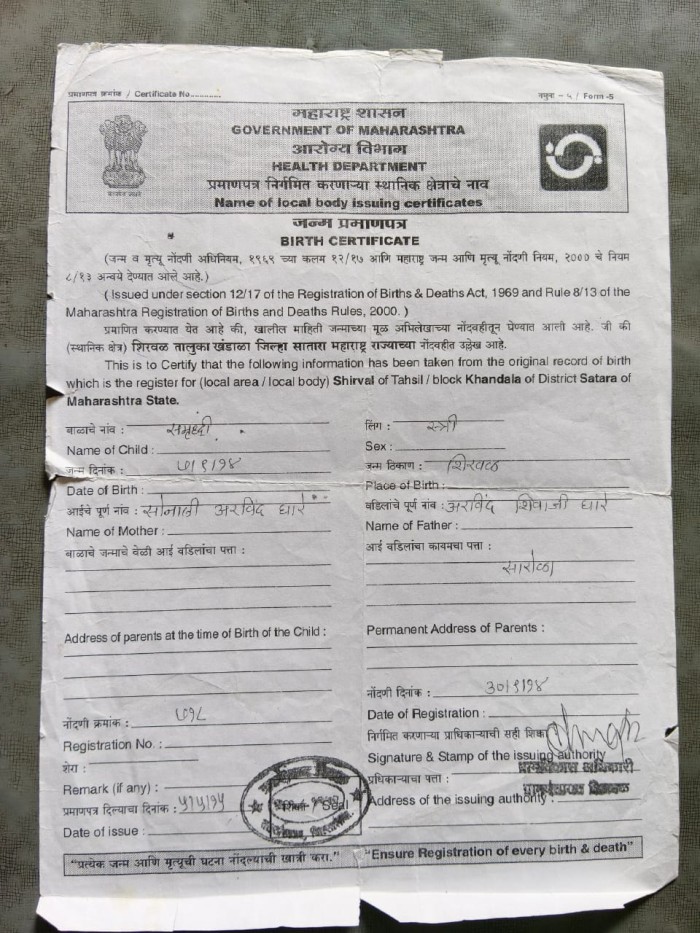 प्रमाणपत्र क्रमांक / Certificate No.
नमुना - ५ / Form -5
महाराष्ट्र शासन
GOVERNMENT OF MAHARASHTRA
आरोग्य विभाग
HEALTH DEPARTMENT
प्रमाणपत्र निर्गमित करणाऱ्या स्थानिक क्षेत्राचे नाव
Name of local body issuing certificates
जन्म प्रमाणपत्र
BIRTH CERTIFICATE
(जन्म व मृत्यू नोंदणी अधिनियम, १९६९ च्या कलम १२/१७ आणि महाराष्ट्र जन्म आणि मृत्यू नोंदणी नियम, २००० चे नियम
८/१३ अन्वये देण्यात आले आहे.)
( Issued under section 12/17 of the Registration of Births & Deaths Act, 1969 and Rule 8/13 of the
Maharashtra Registration of Births and Deaths Rules, 2000. )
प्रमाणित करण्यात येत आहे की, खालील माहिती जन्माच्या मूळ अभिलेखाच्या नोंदवहीतून घेण्यात आली आहे. जी की
(स्थानिक क्षेत्र) शिरवळ तालुका खंडाळा जिल्हा सातारा महाराष्ट्र राज्याच्या नोंदवहीत उल्लेख आहे.
This is to Certify that the following information has been taken from the original record of birth
which is the register for (local area / local body) Shirval of Tahsil / block Khandala of District Satara of
Maharashtra State.
बाळाचे नांव : समृध्दी
Name of Child :
जन्म दिनांक :
Date of Birth :
आईचे पूर्ण नांव : सोनाली अरविंद धारे
Name of Mother :
बाळाचे जन्माचे वेळी आई वडिलांचा पत्ता :
Address of parents at the time of Birth of the Child :
नोंदणी क्रमांक :
Registration No. :
शेरा :
Remark (if any) :
प्रमाणपत्र दिल्याचा दिनांक : ५/५/१५
Date of issue :
लिंग : स्त्री
Sex :
जन्म ठिकाण : शिरवळ
Place of Birth :
वडिलांचे पूर्ण नांव : अरविंद शिवाजी धारे
Name of Father :
आई वडिलांचा कायमचा पत्ता :
सारोळा
Permanent Address of Parents :
नोंदणी दिनांक : ३०/९/१४
Date of Registration :
निर्गमित करणाऱ्या प्राधिकाऱ्याची सही शिक्का
Signature & Stamp of the issuing authority
ग्रामविकास अधिकारी
प्राधिकाऱ्याचा पत्ता :
Address of the issuing authority :
Seal
"प्रत्येक जन्म आणि मृत्यूची घटना नोंदल्याची खात्री करा." "Ensure Registration of every birth & death"